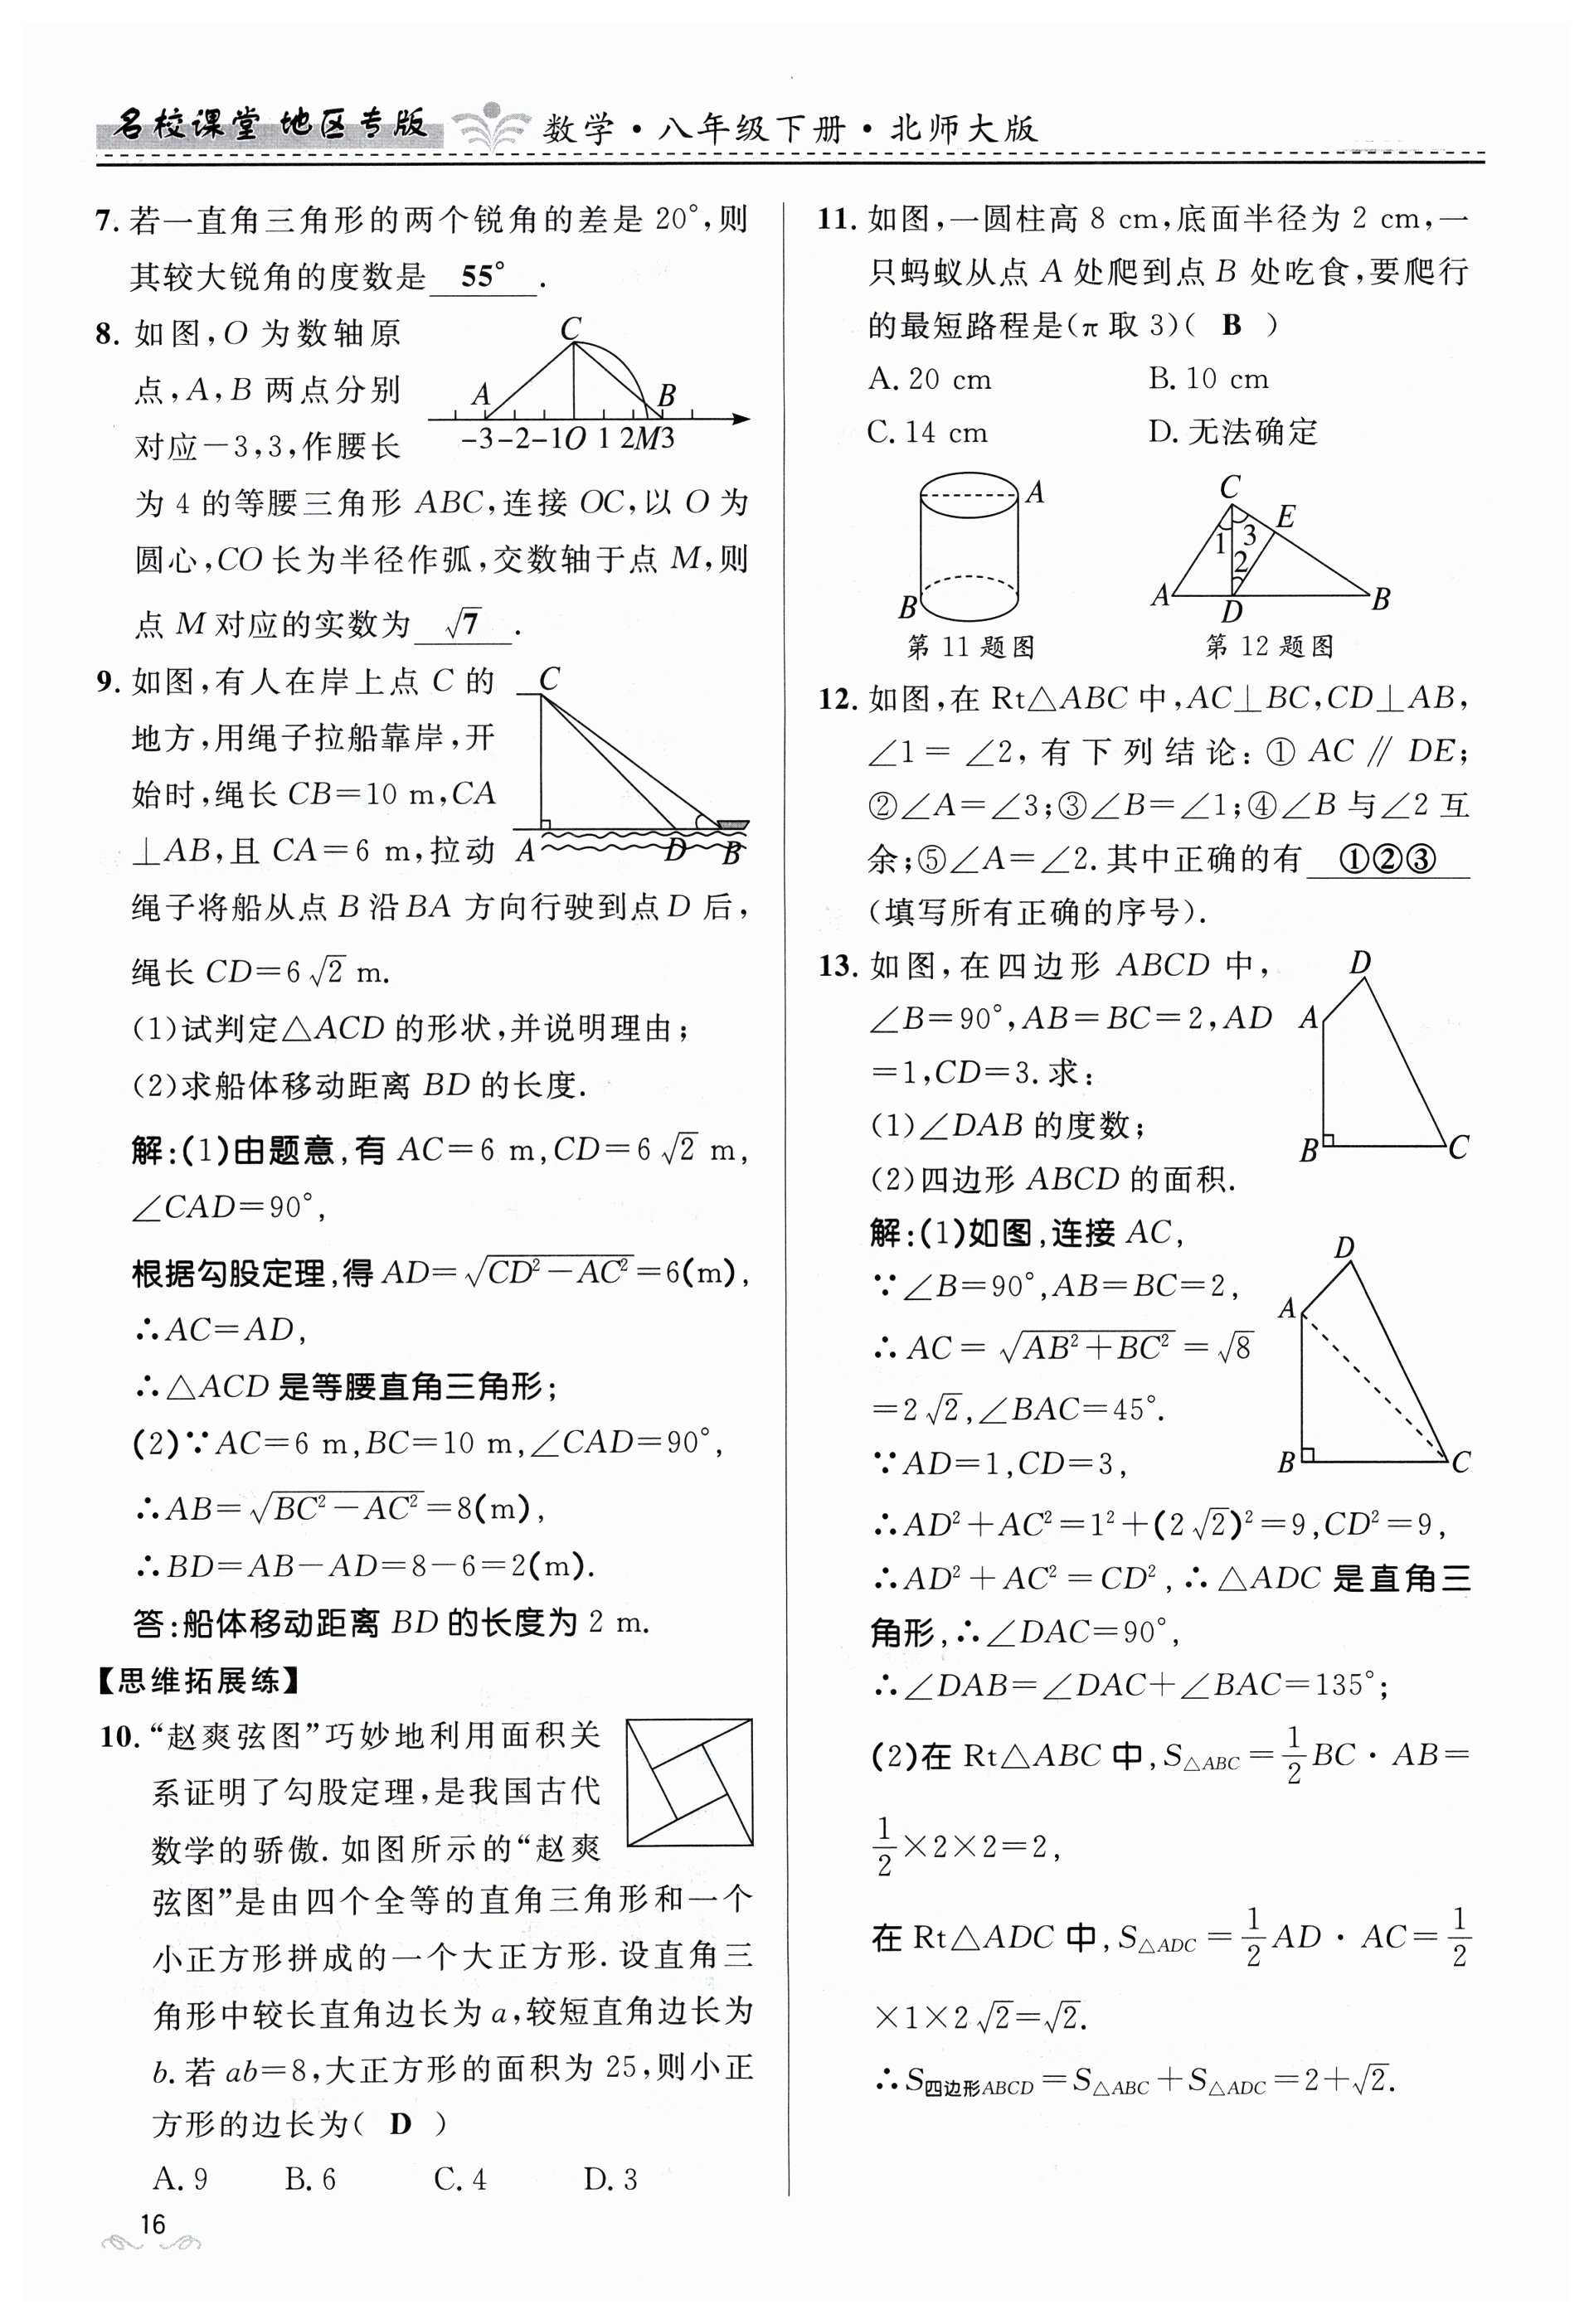 名校课堂 地区专版 数学·八年级下册·北师大版
7. 若一直角三角形的两个锐角的差是 20°,则
其较大锐角的度数是 55° .
8. 如图,O 为数轴原
点,A,B 两点分别
对应－3,3,作腰长
C
A
B
-3 -2 -1 O 1 2 M 3
为 4 的等腰三角形 ABC,连接 OC,以 O 为
圆心,CO 长为半径作弧,交数轴于点 M,则
点 M 对应的实数为 √7 .
9. 如图,有人在岸上点 C 的
地方,用绳子拉船靠岸,开
始时,绳长 CB=10 m,CA
⊥AB,且 CA=6 m,拉动
C
A D B
绳子将船从点 B 沿 BA 方向行驶到点 D 后,
绳长 CD=6√2 m.
(1)试判定△ACD 的形状,并说明理由;
(2)求船体移动距离 BD 的长度.
解:(1)由题意,有 AC=6 m,CD=6√2 m,
∠CAD=90°,
根据勾股定理,得 AD=√(CD²－AC²)=6(m),
∴AC=AD,
∴△ACD 是等腰直角三角形;
(2)∵AC=6 m,BC=10 m,∠CAD=90°,
∴AB=√(BC²－AC²)=8(m),
∴BD=AB－AD=8－6=2(m).
答:船体移动距离 BD 的长度为 2 m.
【思维拓展练】
10. “赵爽弦图”巧妙地利用面积关
系证明了勾股定理,是我国古代
数学的骄傲. 如图所示的“赵爽
弦图”是由四个全等的直角三角形和一个
小正方形拼成的一个大正方形. 设直角三
角形中较长直角边长为 a,较短直角边长为
b. 若 ab=8,大正方形的面积为 25,则小正
方形的边长为( D )
A. 9 B. 6 C. 4 D. 3
16
11. 如图,一圆柱高 8 cm,底面半径为 2 cm,一
只蚂蚁从点 A 处爬到点 B 处吃食,要爬行
的最短路程是(π 取 3)( B )
A. 20 cm B. 10 cm
C. 14 cm D. 无法确定
A
B
C
E
1 3
2
A D B
第 11 题图 第 12 题图
12. 如图,在 Rt△ABC 中,AC⊥BC,CD⊥AB,
∠1=∠2,有下列结论:① AC∥DE;
②∠A=∠3;③∠B=∠1;④∠B 与∠2 互
余;⑤∠A=∠2. 其中正确的有 ①②③
(填写所有正确的序号).
13. 如图,在四边形 ABCD 中,
∠B=90°,AB=BC=2,AD
=1,CD=3. 求:
(1)∠DAB 的度数;
(2)四边形 ABCD 的面积.
D
A
B C
解:(1)如图,连接 AC,
∵∠B=90°,AB=BC=2,
∴AC=√(AB²＋BC²)=√8
=2√2,∠BAC=45°.
∵AD=1,CD=3,
D
A
B C
∴AD²＋AC²=1²＋(2√2)²=9,CD²=9,
∴AD²＋AC²=CD²,∴△ADC 是直角三
角形,∴∠DAC=90°,
∴∠DAB=∠DAC＋∠BAC=135°;
(2)在 Rt△ABC 中,S△ABC=1/2 BC·AB=
1/2×2×2=2,
在 Rt△ADC 中,S△ADC=1/2 AD·AC=1/2
×1×2√2=√2.
∴S四边形ABCD=S△ABC＋S△ADC=2＋√2.